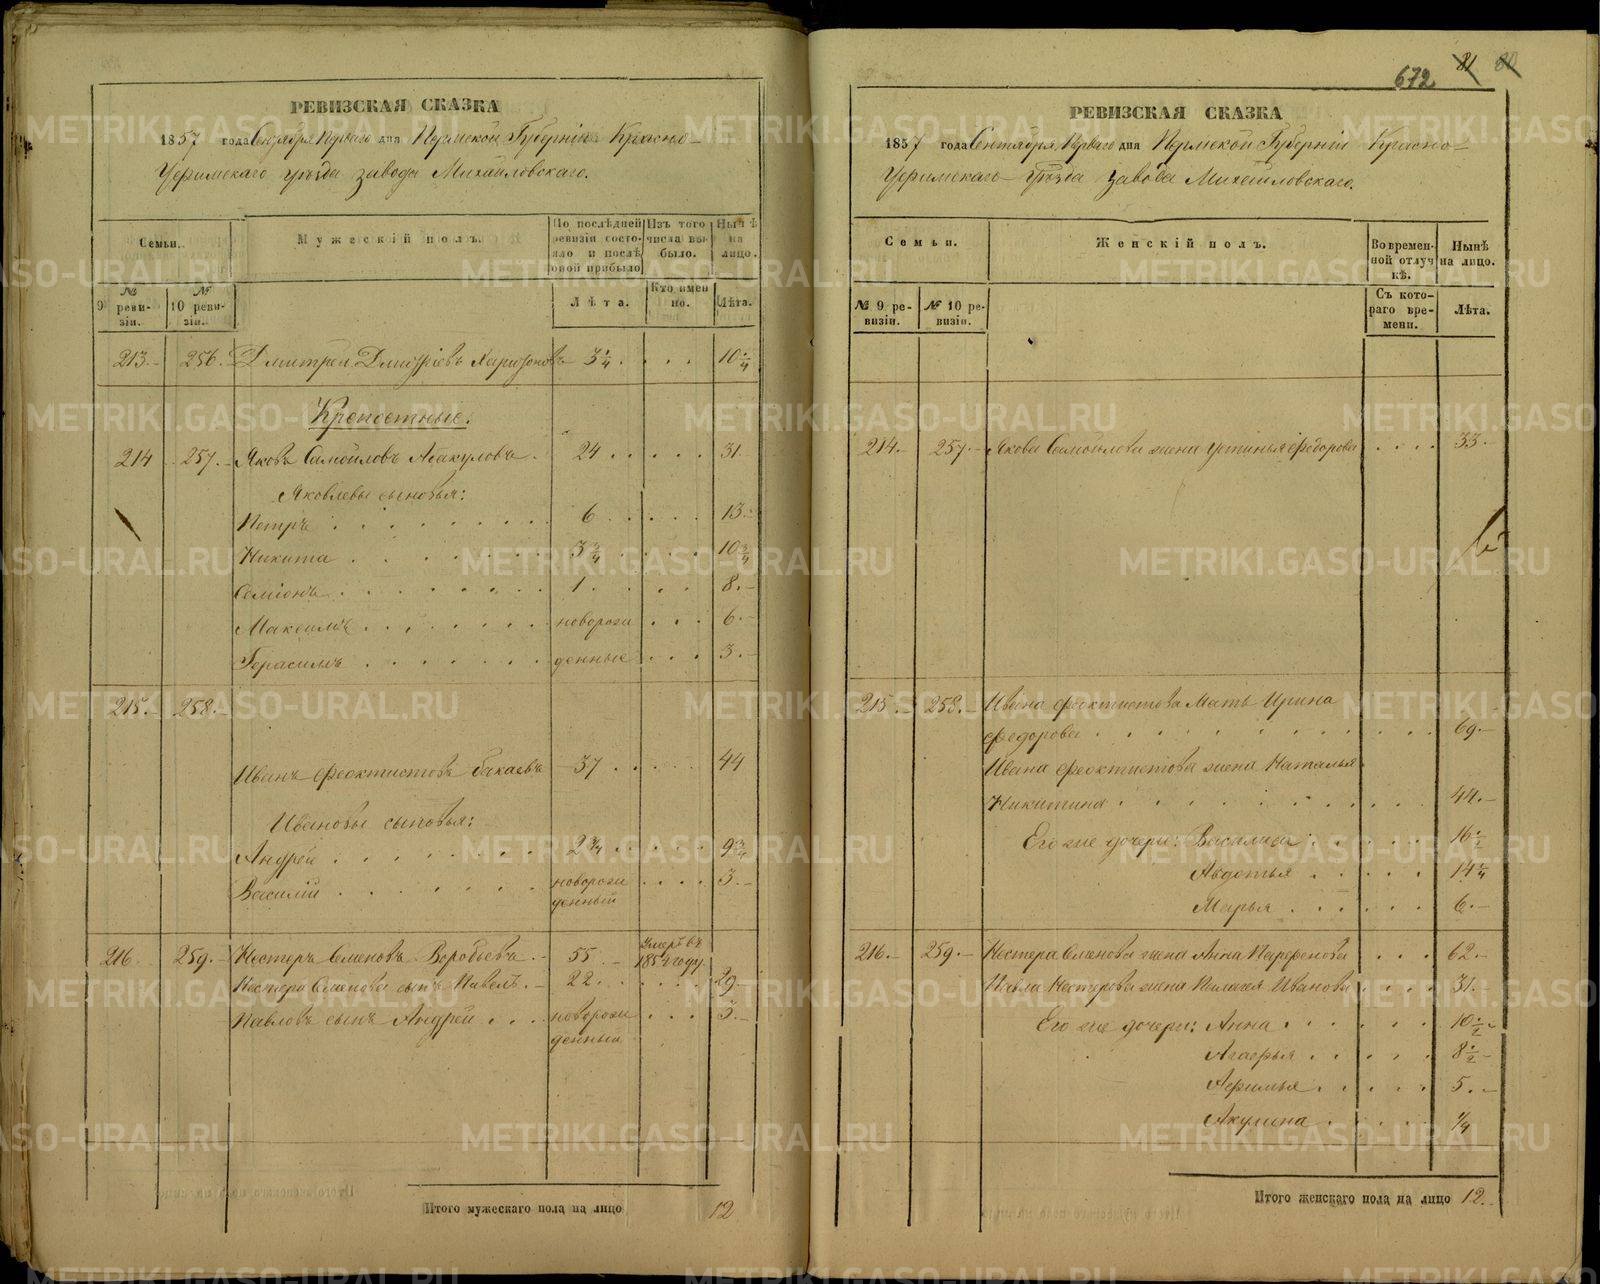 РЕВИЗСКАЯ СКАЗКА
1857 года Сентября Перваго дня Пермской Губерніи Красно-
Уфимскаго уѣзда завода Михайловскаго.
Семьи. Мужескій полъ. По послѣдней ревизіи состояло и послѣ оной прибыло Изъ того числа выбыло. Нынѣ на лицо.
№ 9 ревизіи. № 10 ревизіи. Лѣта. Кто именно. Лѣта.
213.- 256. Дмитрей Дмитріевъ Харитоновъ 3 1/4 . . . . 10 1/4
Крепостные.
214 257. Яковъ Самойловъ Абакуловъ . 24 . . . . 31.
Яковлевы сыновья:
Петръ 6 13.-
Никита 3 3/4 10 3/4
Семіонъ 1 8.-
Максимъ новорож 6.-
Герасимъ денные 3.-
215.- 258.-
Иванъ Феоктистовъ Бакаевъ 37 44
Ивановы сыновья:
Андрей 2 3/4 9 3/4
Василій новорож 3.-
денный
216 259.- Нестеръ Семеновъ Воробьевъ.- 55 умеръ въ 1854 году.
Нестера Семенова сынъ Павелъ.- 22 29
Павловъ сынъ Андрей новорож 3.-
денный
Итого мужескаго пола на лицо 12
672 81 80
РЕВИЗСКАЯ СКАЗКА
1857 года Сентября Перваго дня Пермской Губерніи Красно-
Уфимскаго Уѣзда завода Михайловскаго.
Семьи. Женскій полъ. Во временной отлучкѣ. Нынѣ на лицо.
№ 9 ревизіи. № 10 ревизіи. Съ котораго времени. Лѣта.
214.- 257.- Якова Самойлова жена Устинья Федорова 33.
215.- 258.- Ивана Феоктистова Мать Ирина
Федорова 69.-
Ивана Феоктистова жена Наталья
Никитина 44.-
Его же дочери: Василиса 16 1/2
Авдотья 14 1/4
Марья 6.-
216.- 259.- Нестера Семенова жена Анна Парфенова 62.-
Павла Нестерова жена Пелагея Иванова 31.-
Его же дочери: Анна 10 1/2
Агафья 8 1/2
Афимья 5.-
Акулина 1/4
Итого женскаго пола на лицо 12.
METRIKI.GASO-URAL.RU